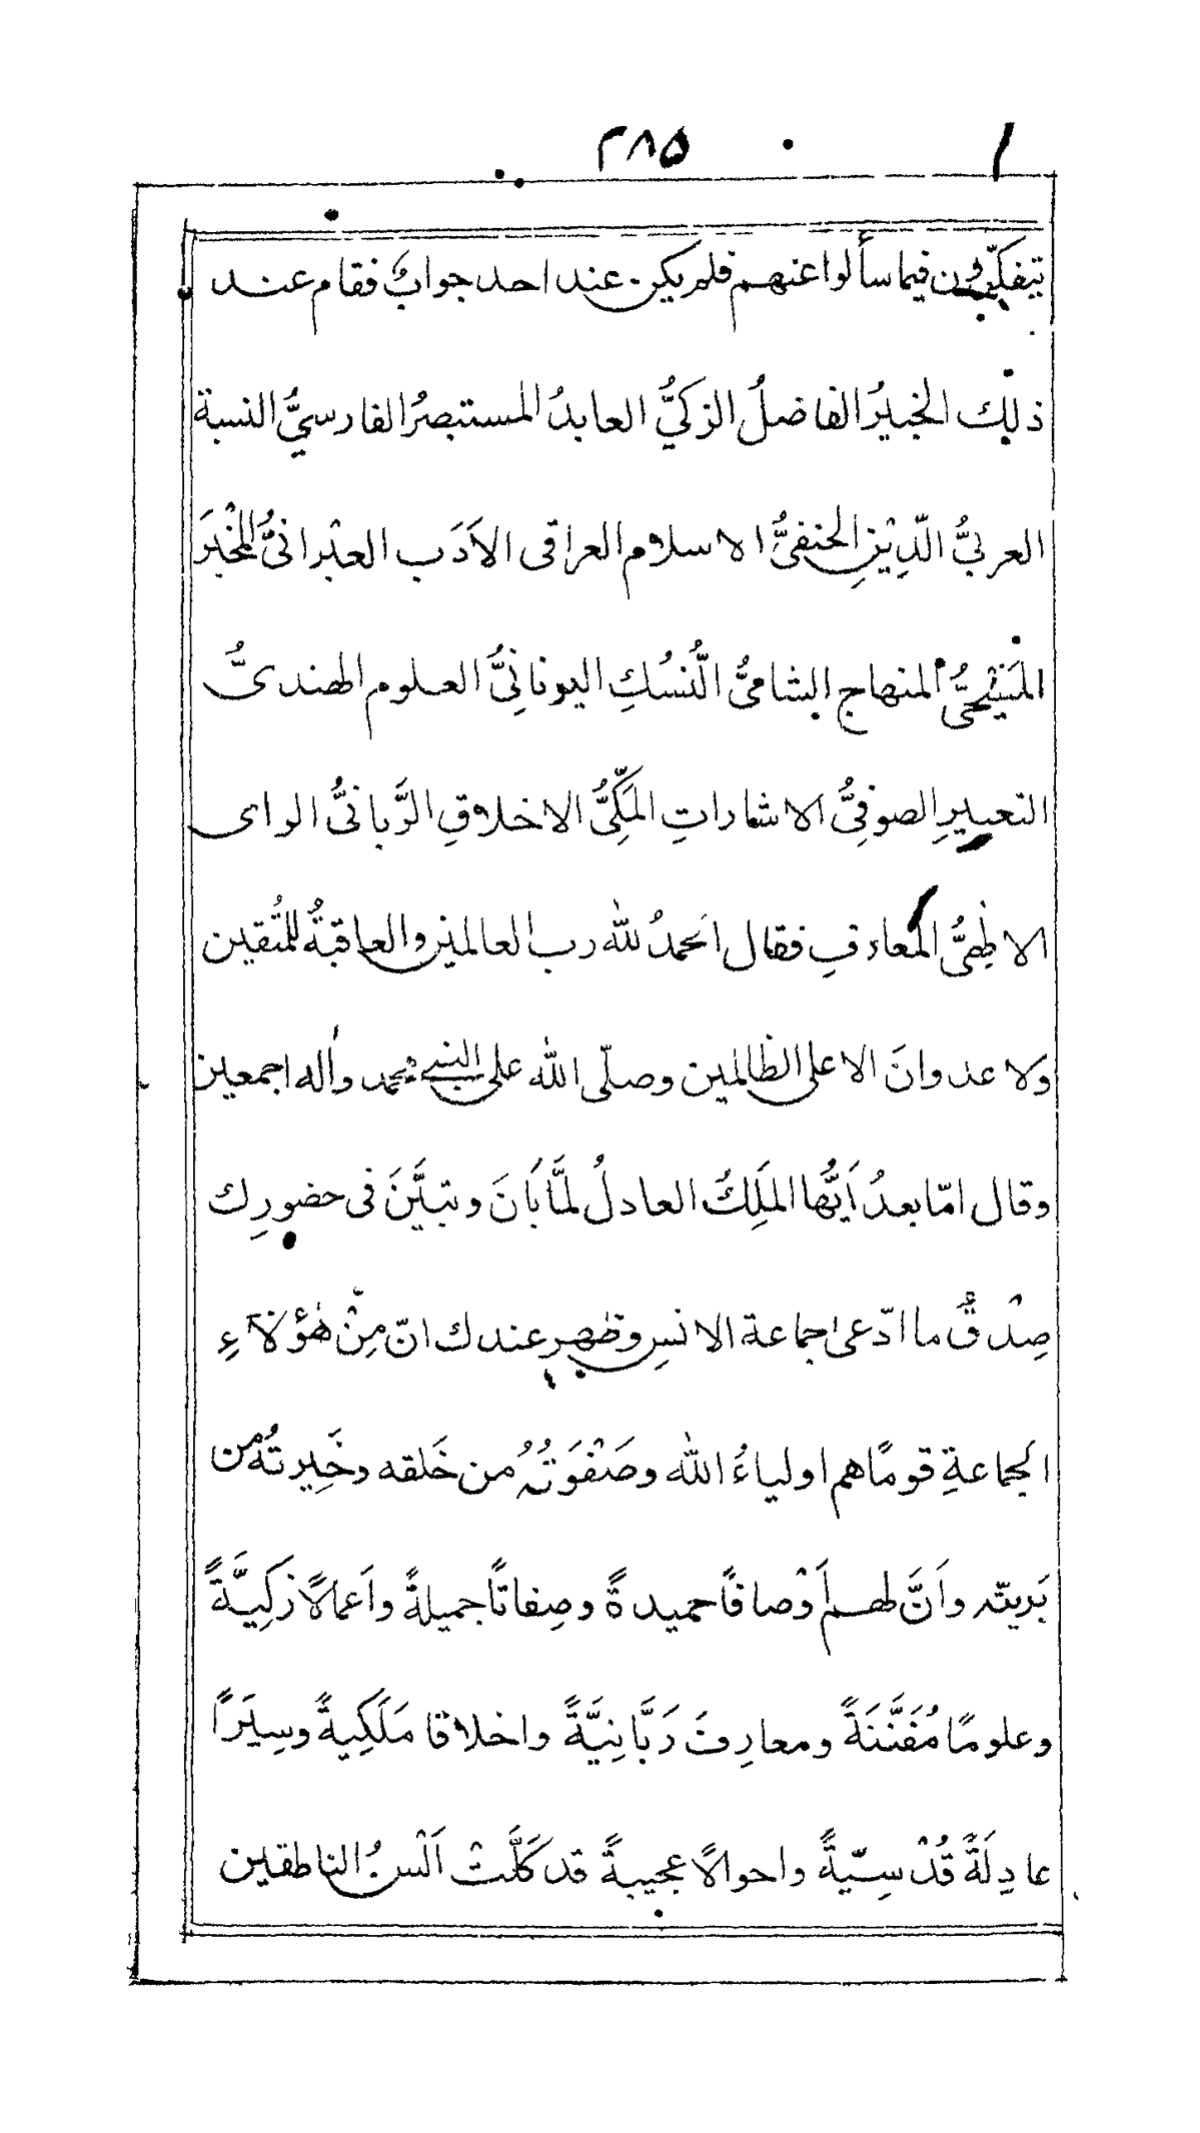 ٢٨٥
يتفكّرون فيما سألوا عنهم فلم يكن عند احد جوابٌ فقام عند
ذلك الخبيرُ الفاضلُ الزكيُّ العابدُ المستبصرُ الفارسيُّ النسبة
العربيُّ الدِّيْنِ الحنفيُّ الاسلام العراقى الاَدَب العبْرانىُّ المَخْبَر
المَسِيْحىُّ المنهاج الشامىُّ النُّسُكِ اليونانِىُّ العلوم الهندىُّ
التعبيرِ الصوفِىُّ الاشاراتِ المَلَكِّىُّ الاخلاقِ الرَّبانىُّ الراى
الالٰهِىُّ المعارفِ فقال الحمدُ لله رب العالمين والعاقبةُ للمُتقين
ولا عدوانَ الا على الظالمين وصلّى الله على النبى محمد واٰله اجمعين
وقال امّا بعدُ اَيُّها المَلِكُ العادلُ لمَّا بَانَ وتبيَّنَ فى حضورِك
صِدْقُ ما ادّعى جماعة الانسِ وظهر عندك انّ مِنْ هٰؤلآءِ
الجماعةِ قومًا هم اولياءُ الله وصَفْوَتُهُ من خَلقه وخَيِرتُه من
بَريته واَنَّ لهم اَوْصافًا حميدةً وصِفاتًا جميلةً واَعمالًا زَكِيَّةً
وعلومًا مُفَنَّنَةً ومعارِفَ رَبَّانِيَّةً واخلاقا مَلَكِيةً وسِيَرًا
عادِلَةً قُدْسِيّةً واحوالًا عجيبةً قد كَلَّتْ اَلْسُنُ الناطقين